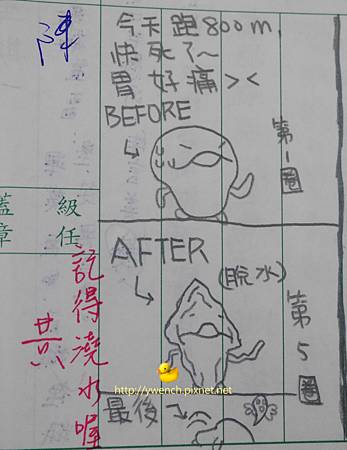 今天跑800m,
快死了~
胃好痛><
BEFORE
第1圈
AFTER
(脫水)
第5圈
最後
陳
級任
蓋章
記得澆水喔
黃
http://vwench.pixnet.net